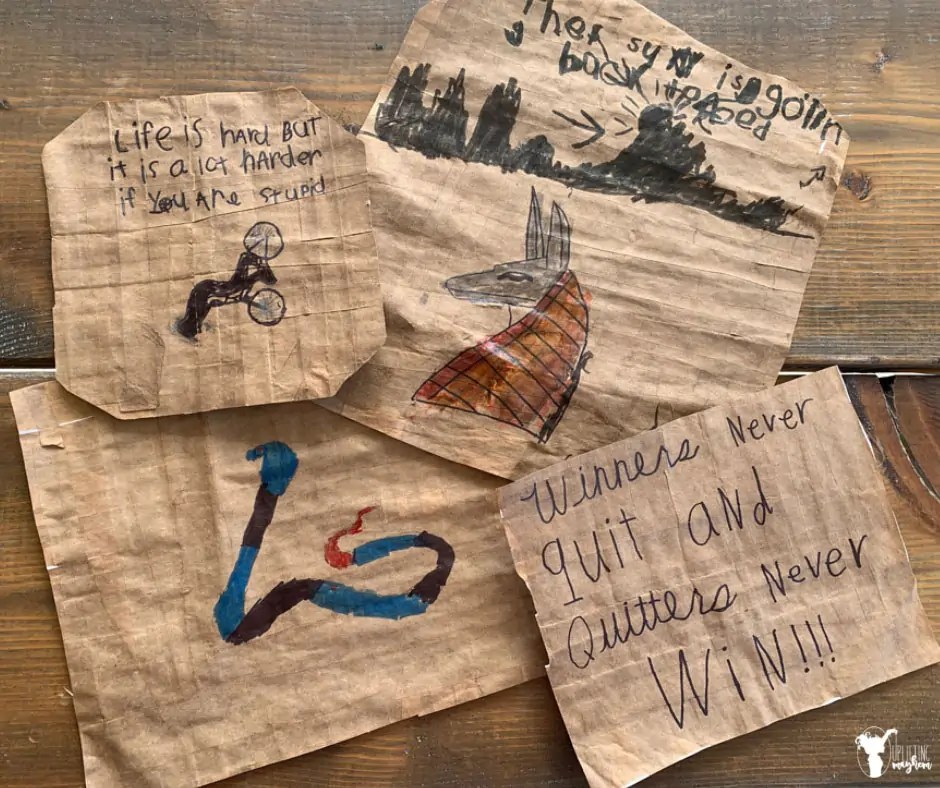 Life is hard BUT
it is a lot harder
if you Are stupid
The sun is goin
back to bed
Winners Never
quit and
Quitters Never
WiN!!!
UPLIFTING
mayhem